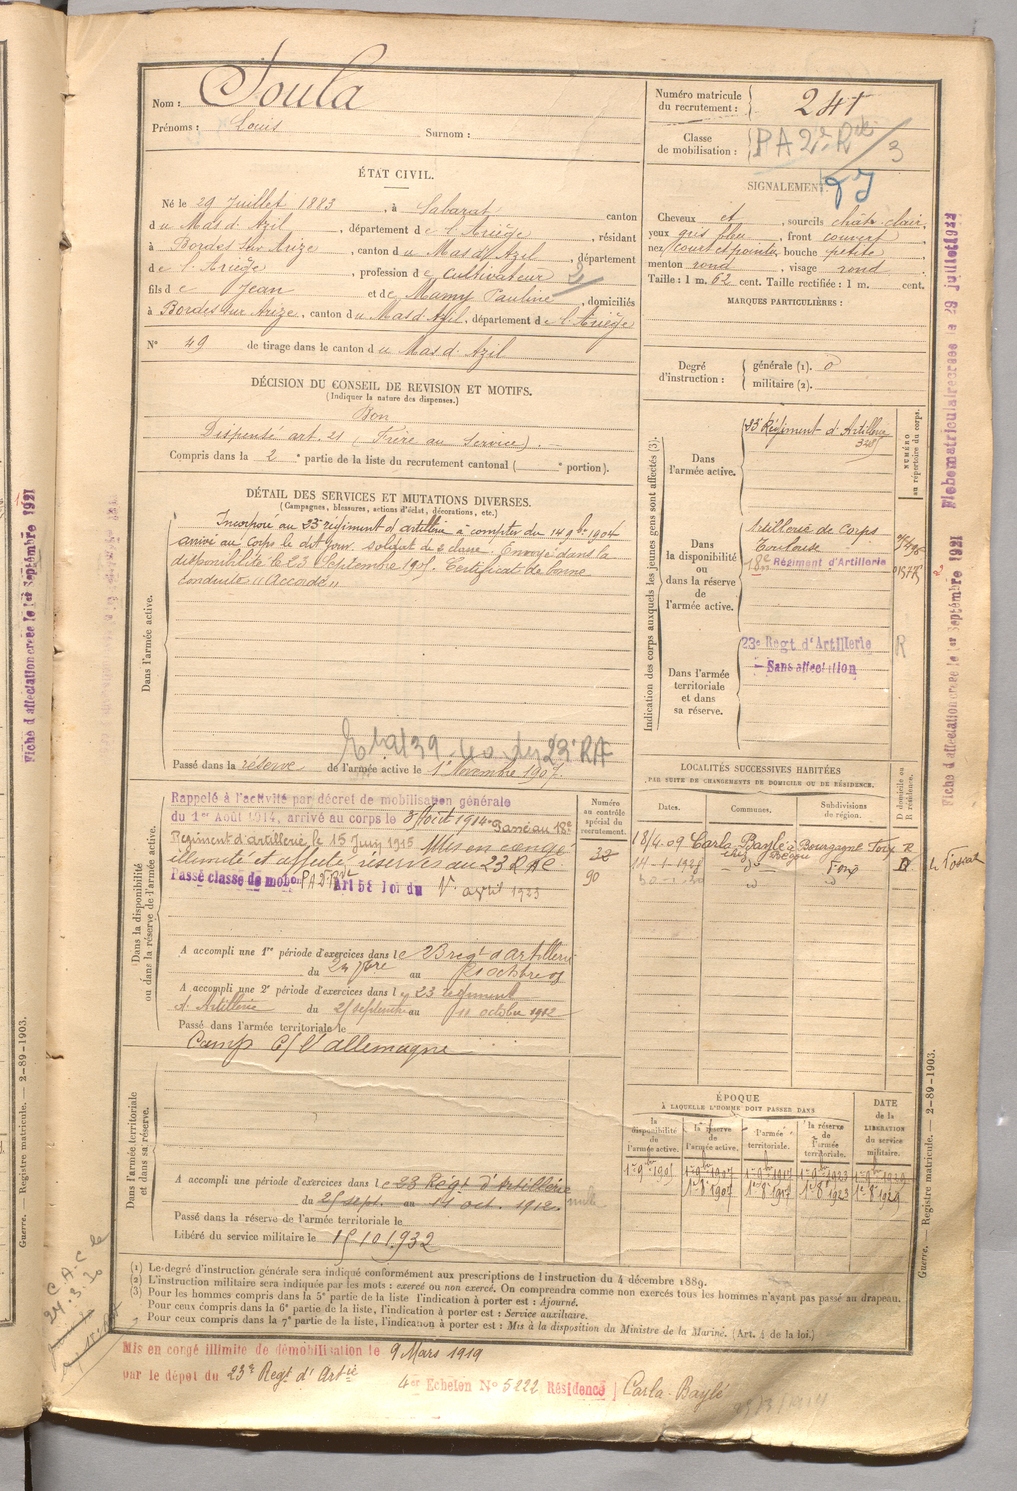 Nom : Soula
Prénoms : Louis Surnom :
ÉTAT CIVIL.
Né le 29 Juillet 1883, à Sabarat canton
du Mas d'Azil, département de l'Ariège, résidant
à Bordes sur Arize, canton du Mas d'Azil, département
de l'Ariège, profession de cultivateur
fils de Jean et de Mamy Pauline, domiciliés
à Bordes sur Arize, canton du Mas d'Azil, département de l'Ariège
N° 49 de tirage dans le canton du Mas d'Azil
DÉCISION DU CONSEIL DE REVISION ET MOTIFS.
(Indiquer la nature des dispenses.)
Bon
Dispensé art. 21 (Frère au Service).
Compris dans la 2e partie de la liste du recrutement cantonal ( e portion).
DÉTAIL DES SERVICES ET MUTATIONS DIVERSES.
(Campagnes, blessures, actions d'éclat, décorations, etc.)
Dans l'armée active.
Incorporé au 23e régiment d'artillerie à compter du 14 9bre 1904
arrivé au Corps le dit jour. soldat de 2e classe. Envoyé dans la
disponibilité le 23 Septembre 1905. Certificat de bonne
conduite "Accordé"
23e RA
Passé dans la réserve de l'armée active le 1er Novembre 1907.
Dans la disponibilité
ou dans la réserve de l'armée active.
Rappelé à l'activité par décret de mobilisation générale
du 1er Août 1914, arrivé au corps le 3 Août 1914. Passé au 18e
Régiment d'artillerie, le 15 Juin 1915 Mis en congé
illimité et affecté réserves au 23 RAC
Passé classe de mobon PA 2e Rt Art 58 loi du 1er avril 1923
A accompli une 1re période d'exercices dans le 23 regt d'artillerie
du au octobre
A accompli une 2e période d'exercices dans le 23 régiment
d'Artillerie du 25 septembre au 11 octobre 1912
Passé dans l'armée territoriale le
Camp C/ l'allemagne
Dans l'armée territoriale
et dans sa réserve.
A accompli une période d'exercices dans le 23 Regt d'Artillerie
du 25 sept. au 11 oct. 1912. nulle
Passé dans la réserve de l'armée territoriale le
Libéré du service militaire le 15 10 1932
Numéro
au contrôle
spécial du
recrutement.
32
90
Numéro matricule
du recrutement : 241
Classe
de mobilisation : PA 2e Rt / 3
SIGNALEMENT.
Cheveux et, sourcils chât-clair,
yeux gris bleu, front couvert
nez court et pointu, bouche petite
menton rond, visage rond
Taille : 1 m. 62 cent. Taille rectifiée : 1 m. cent.
MARQUES PARTICULIÈRES :
Degré
d'instruction :
générale (1). 0
militaire (2).
Indication des corps auxquels les jeunes gens sont affectés (3).
NUMÉRO
au répertoire du corps.
Dans
l'armée active.
23e Régiment d'Artillerie
Dans
la disponibilité
ou
dans la réserve
de
l'armée active.
Artillerie de Corps
Toulouse
18e Régiment d'Artillerie
Dans l'armée
territoriale
et dans
sa réserve.
23e Regt d'Artillerie R
Sans affectation
LOCALITÉS SUCCESSIVES HABITÉES
PAR SUITE DE CHANGEMENTS DE DOMICILE OU DE RÉSIDENCE.
Dates. Communes. Subdivisions
de région. D domicile ou
R résidence.
18/4.09 Carla Bayle Foix R
14-1-1928 - d° - Foix D
30-1-30
ÉPOQUE
À LAQUELLE L'HOMME DOIT PASSER DANS
la
disponibilité
de
l'armée active.
la réserve
de
l'armée active.
l'armée
territoriale.
la réserve
de
l'armée
territoriale.
DATE
de la
LIBÉRATION
du service
militaire.
1er 9bre 1905 1er 9bre 1907 1er 9bre 1917 1er 9bre 1923 1er 9bre 1929
1er 8bre 1907 1er 8bre 1917 1er 8bre 1923 1er 8bre 1929
(1) Le degré d'instruction générale sera indiqué conformément aux prescriptions de l'instruction du 4 décembre 1889.
(2) L'instruction militaire sera indiquée par les mots : exercé ou non exercé. On comprendra comme non exercés tous les hommes n'ayant pas passé au drapeau.
(3) Pour les hommes compris dans la 5e partie de la liste l'indication à porter est : Ajourné.
Pour ceux compris dans la 6e partie de la liste, l'indication à porter est : Service auxiliaire.
Pour ceux compris dans la 7e partie de la liste, l'indication à porter est : Mis à la disposition du Ministre de la Marine. (Art. 4 de la loi.)
Mis en congé illimité de démobilisation le 9 Mars 1919
par le dépôt du 23e Regt d'Artie
4er Echelon N° 5222 Résidence Carla-Bayle
C.A.C le
24.3.30
Guerre. — Registre matricule. — 2-89-1903.
Guerre. — Registre matricule. — 2-89-1903.
Fiche d'affectation créée le 1er Septembre 1921
Fiche d'affectation créée le 1er Septembre 1921
Fiche matriculaire créée le 29 juillet